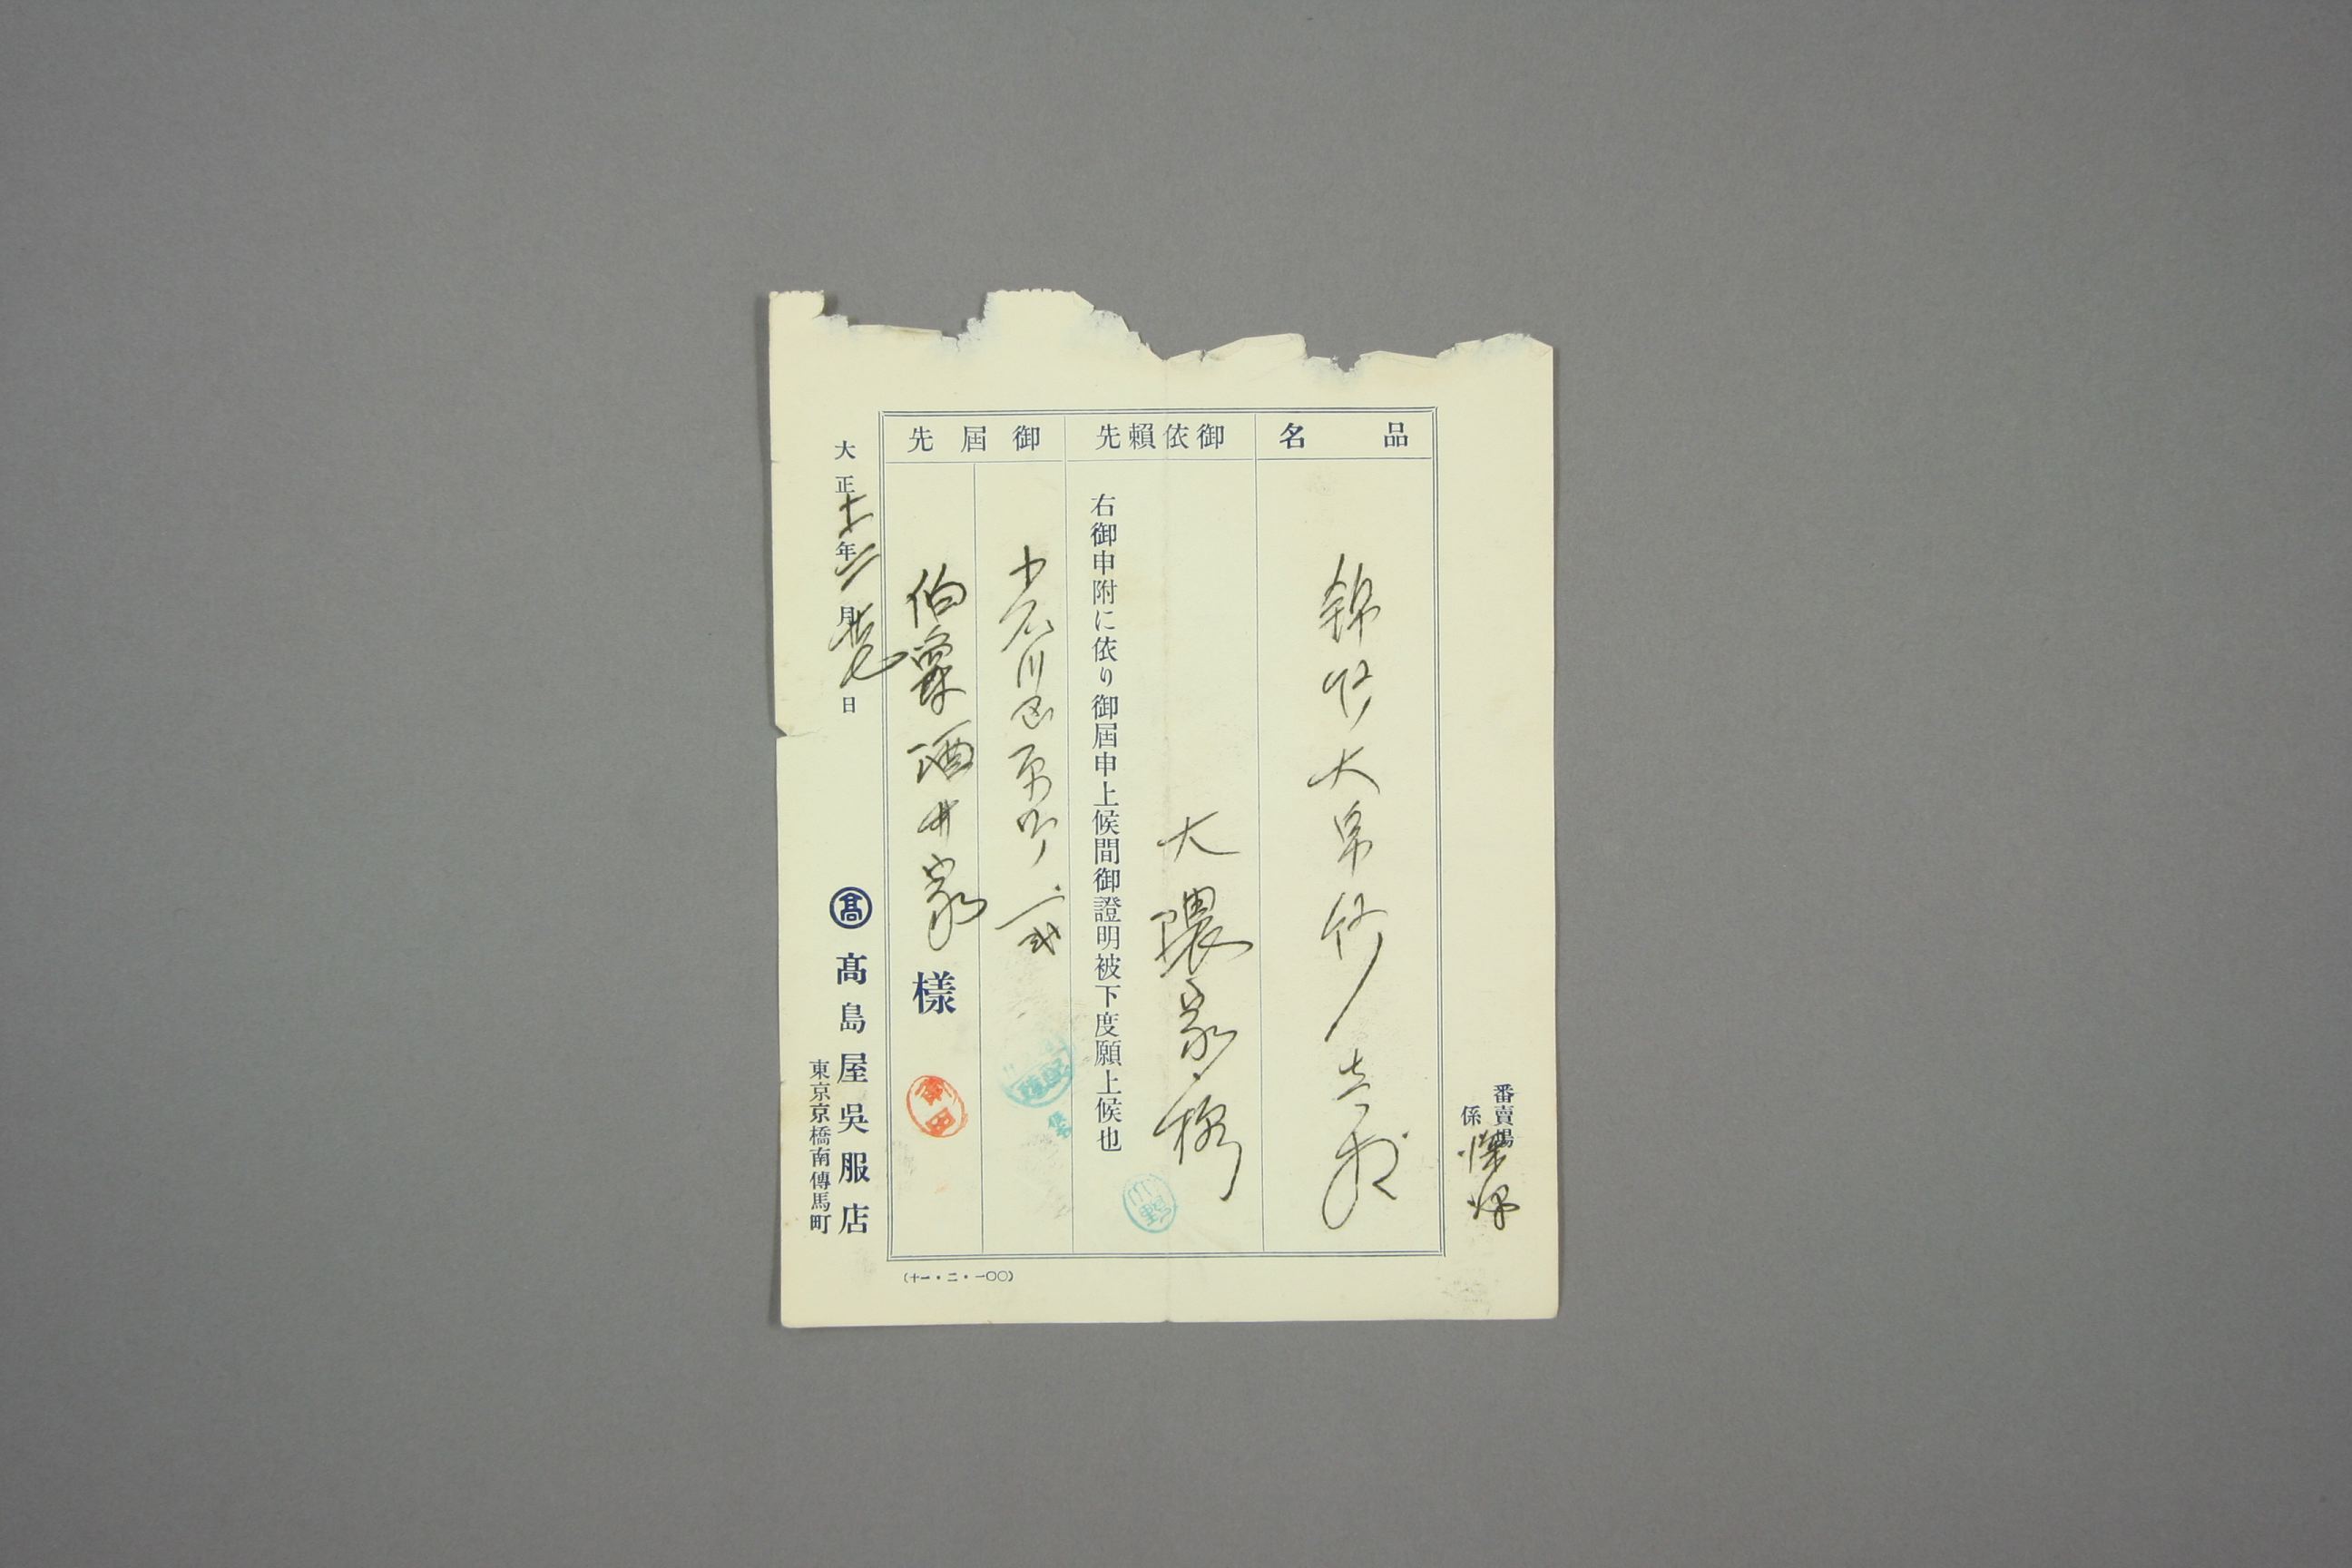 番賣場
係
品名
錦紗大帛紗壱 
御依賴先
大隈家様
右御申附に依り御屆申上候間御證明被下度願上候也
小野
御屆先
小石川區原町一二〇
伯爵酒井家樣
大正十一年二月 日
髙 髙島屋吳服店
東京京橋南傳馬町
(十一・二・一〇〇)